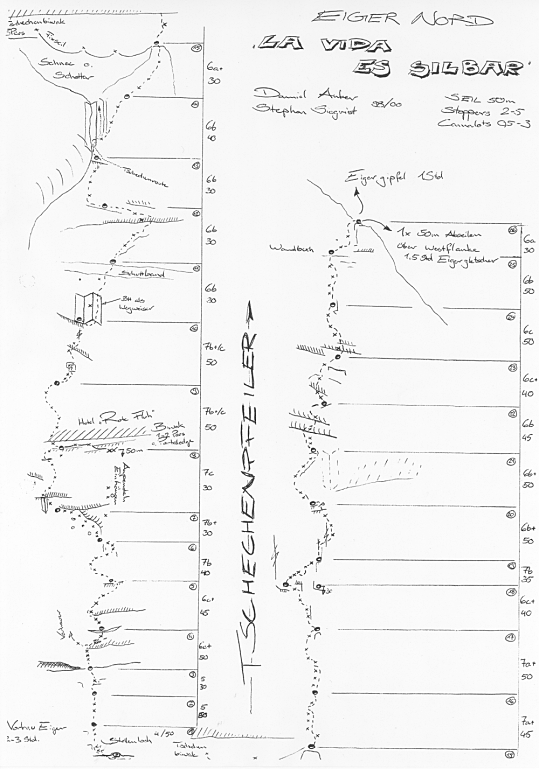 EIGER NORD
"LA VIDA
ES SILBAR"
Daniel Anker
Stephan Siegrist
98/00
SEIL 50m
Stoppers 2-5
Camalots 05-3
Tschechenbiwak
5 Pers
Fixseil
Schnee o.
Schotter
Tschechenroute
Schuttband
Wegweiser
Hotel "Rote Fluh"
Biwak
1-2 Pers
50m
Vorbau Eiger
2-3 Std.
Stollenloch
4/50
Tschechen
biwak
6a+
30
6b
40
6b
30
6b
30
6b
30
7b+/c
50
7b+/c
50
7c
30
7b+
30
7b
40
6c+
45
6c+
50
5
5
TSCHECHENPFEILER
Eigergipfel 1Std
1x 50m Abseilen
über Westflanke
1.5 Std Eigergletscher
Wandbuch
6a
30
6b
50
6c
50
6c+
40
6b
45
6b+
50
6b+
50
7b
35
6c+
40
7a+
50
7a+
45